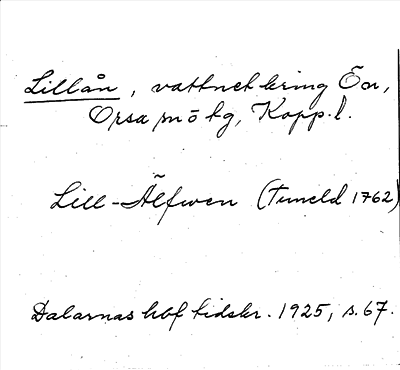 Lillån, vattnet kring Ön,
Orsa sn o tg, Kopp. l.
Lill-Älfwen (Tuneld 1762)
Dalarnas hbf tidskr. 1925, s. 67.